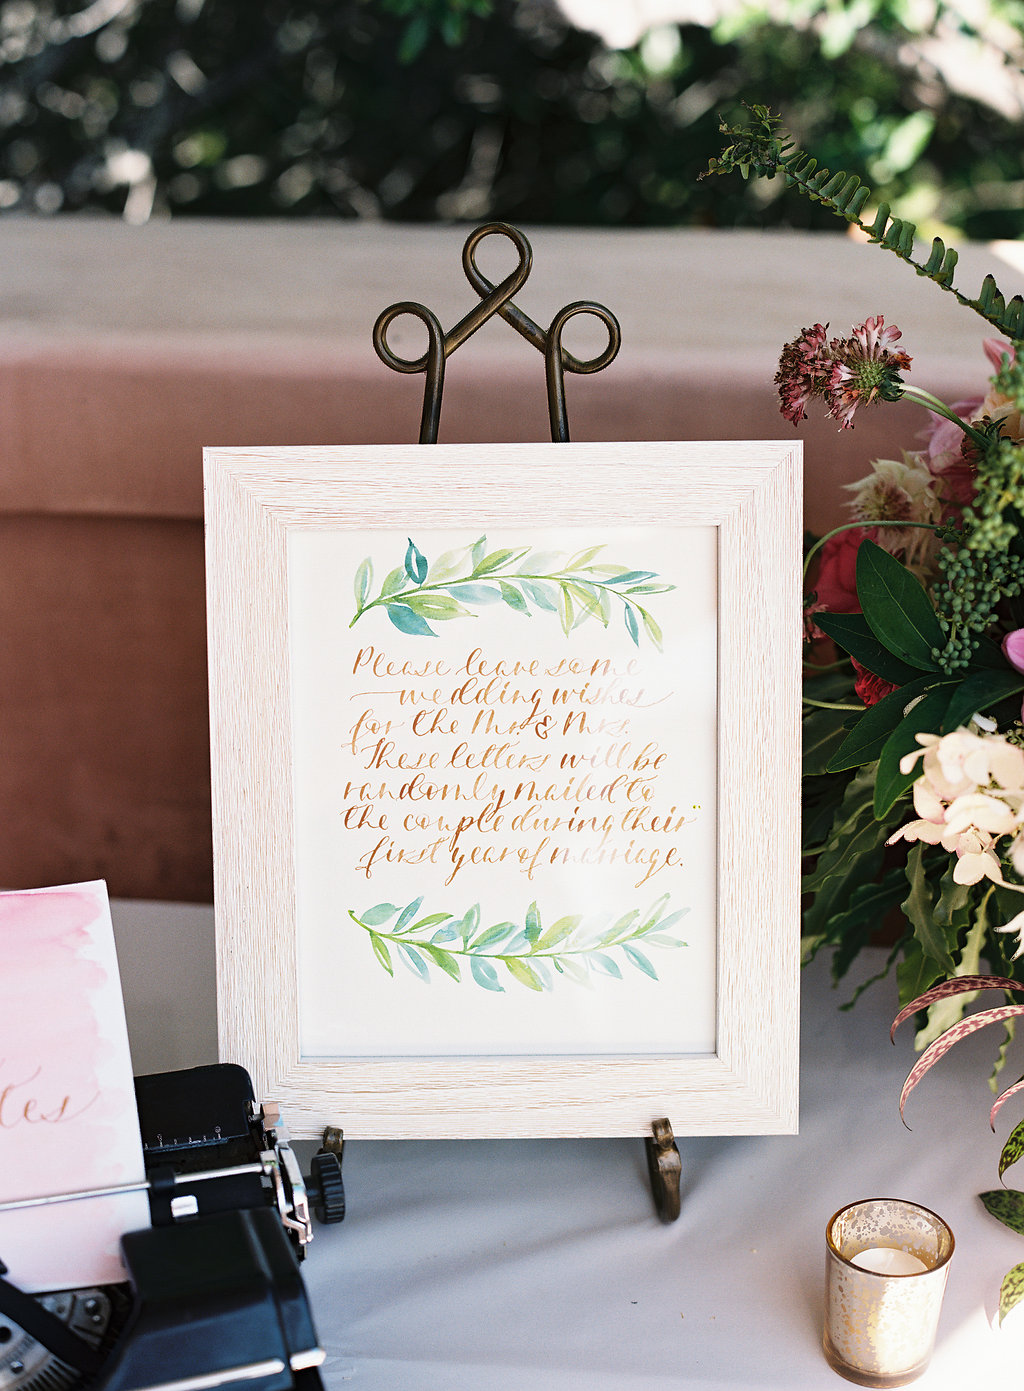 Please leave some
wedding wishes
for the Mr. & Mrs.
These letters will be
randomly mailed to
the couple during their
first year of marriage.